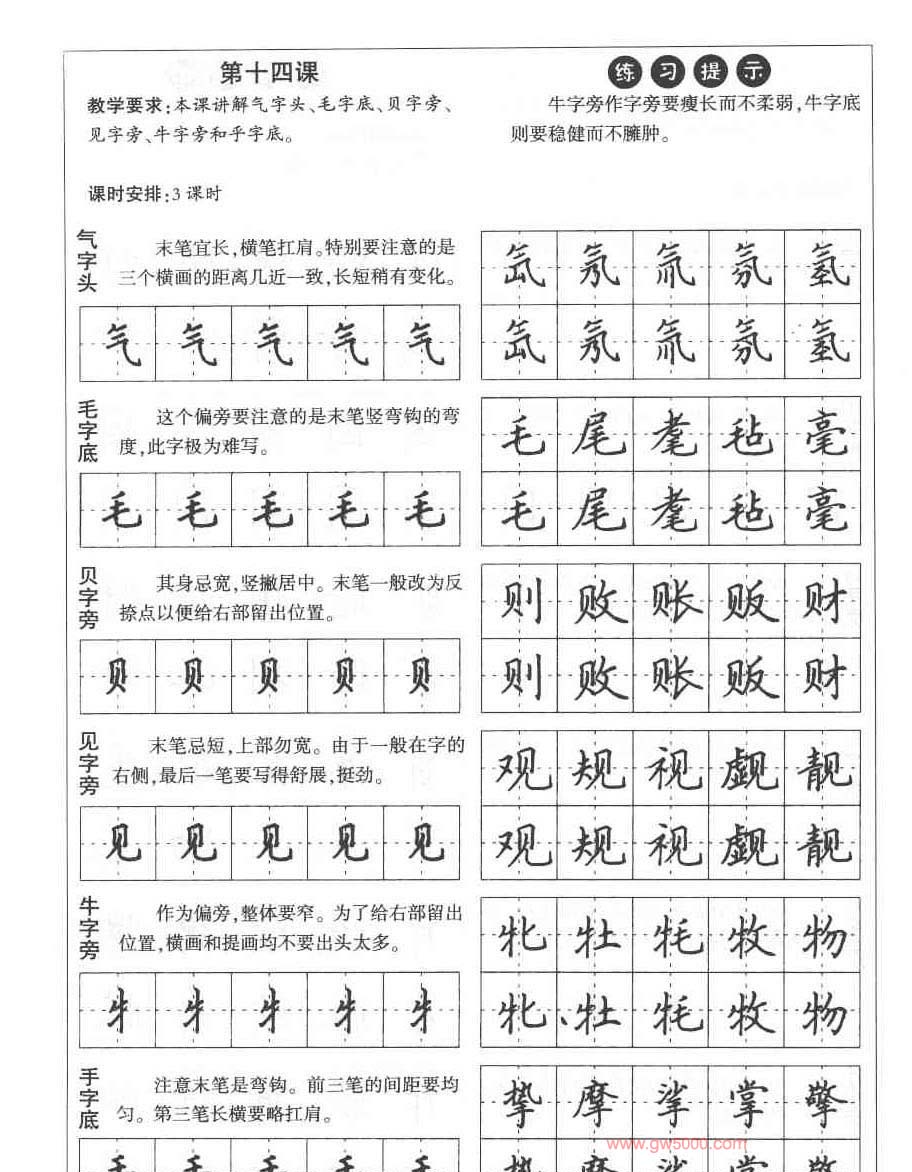 第十四课
教学要求:本课讲解气字头、毛字底、贝字旁、
见字旁、牛字旁和乎字底。
课时安排:3课时
练习提示
牛字旁作字旁要瘦长而不柔弱,牛字底
则要稳健而不臃肿。
气字头
末笔宜长,横笔扛肩。特别要注意的是
三个横画的距离几近一致,长短稍有变化。
气 气 气 气 气
氙 氖 氚 氛 氢
氙 氖 氚 氛 氢
毛字底
这个偏旁要注意的是末笔竖弯钩的弯
度,此字极为难写。
毛 毛 毛 毛 毛
毛 尾 耄 毡 毫
毛 尾 耄 毡 毫
贝字旁
其身忌宽,竖撇居中。末笔一般改为反
捺点以便给右部留出位置。
贝 贝 贝 贝 贝
则 败 账 贩 财
则 败 账 贩 财
见字旁
末笔忌短,上部勿宽。由于一般在字的
右侧,最后一笔要写得舒展,挺劲。
见 见 见 见 见
观 规 视 觑 靓
观 规 视 觑 靓
牛字旁
作为偏旁,整体要窄。为了给右部留出
位置,横画和提画均不要出头太多。
牜 牜 牜 牜 牜
牝 牡 牦 牧 物
牝 牡 牦 牧 物
手字底
注意末笔是弯钩。前三笔的间距要均
匀。第三笔长横要略扛肩。
挚 摩 挲 掌 擎
www.gw5000.com